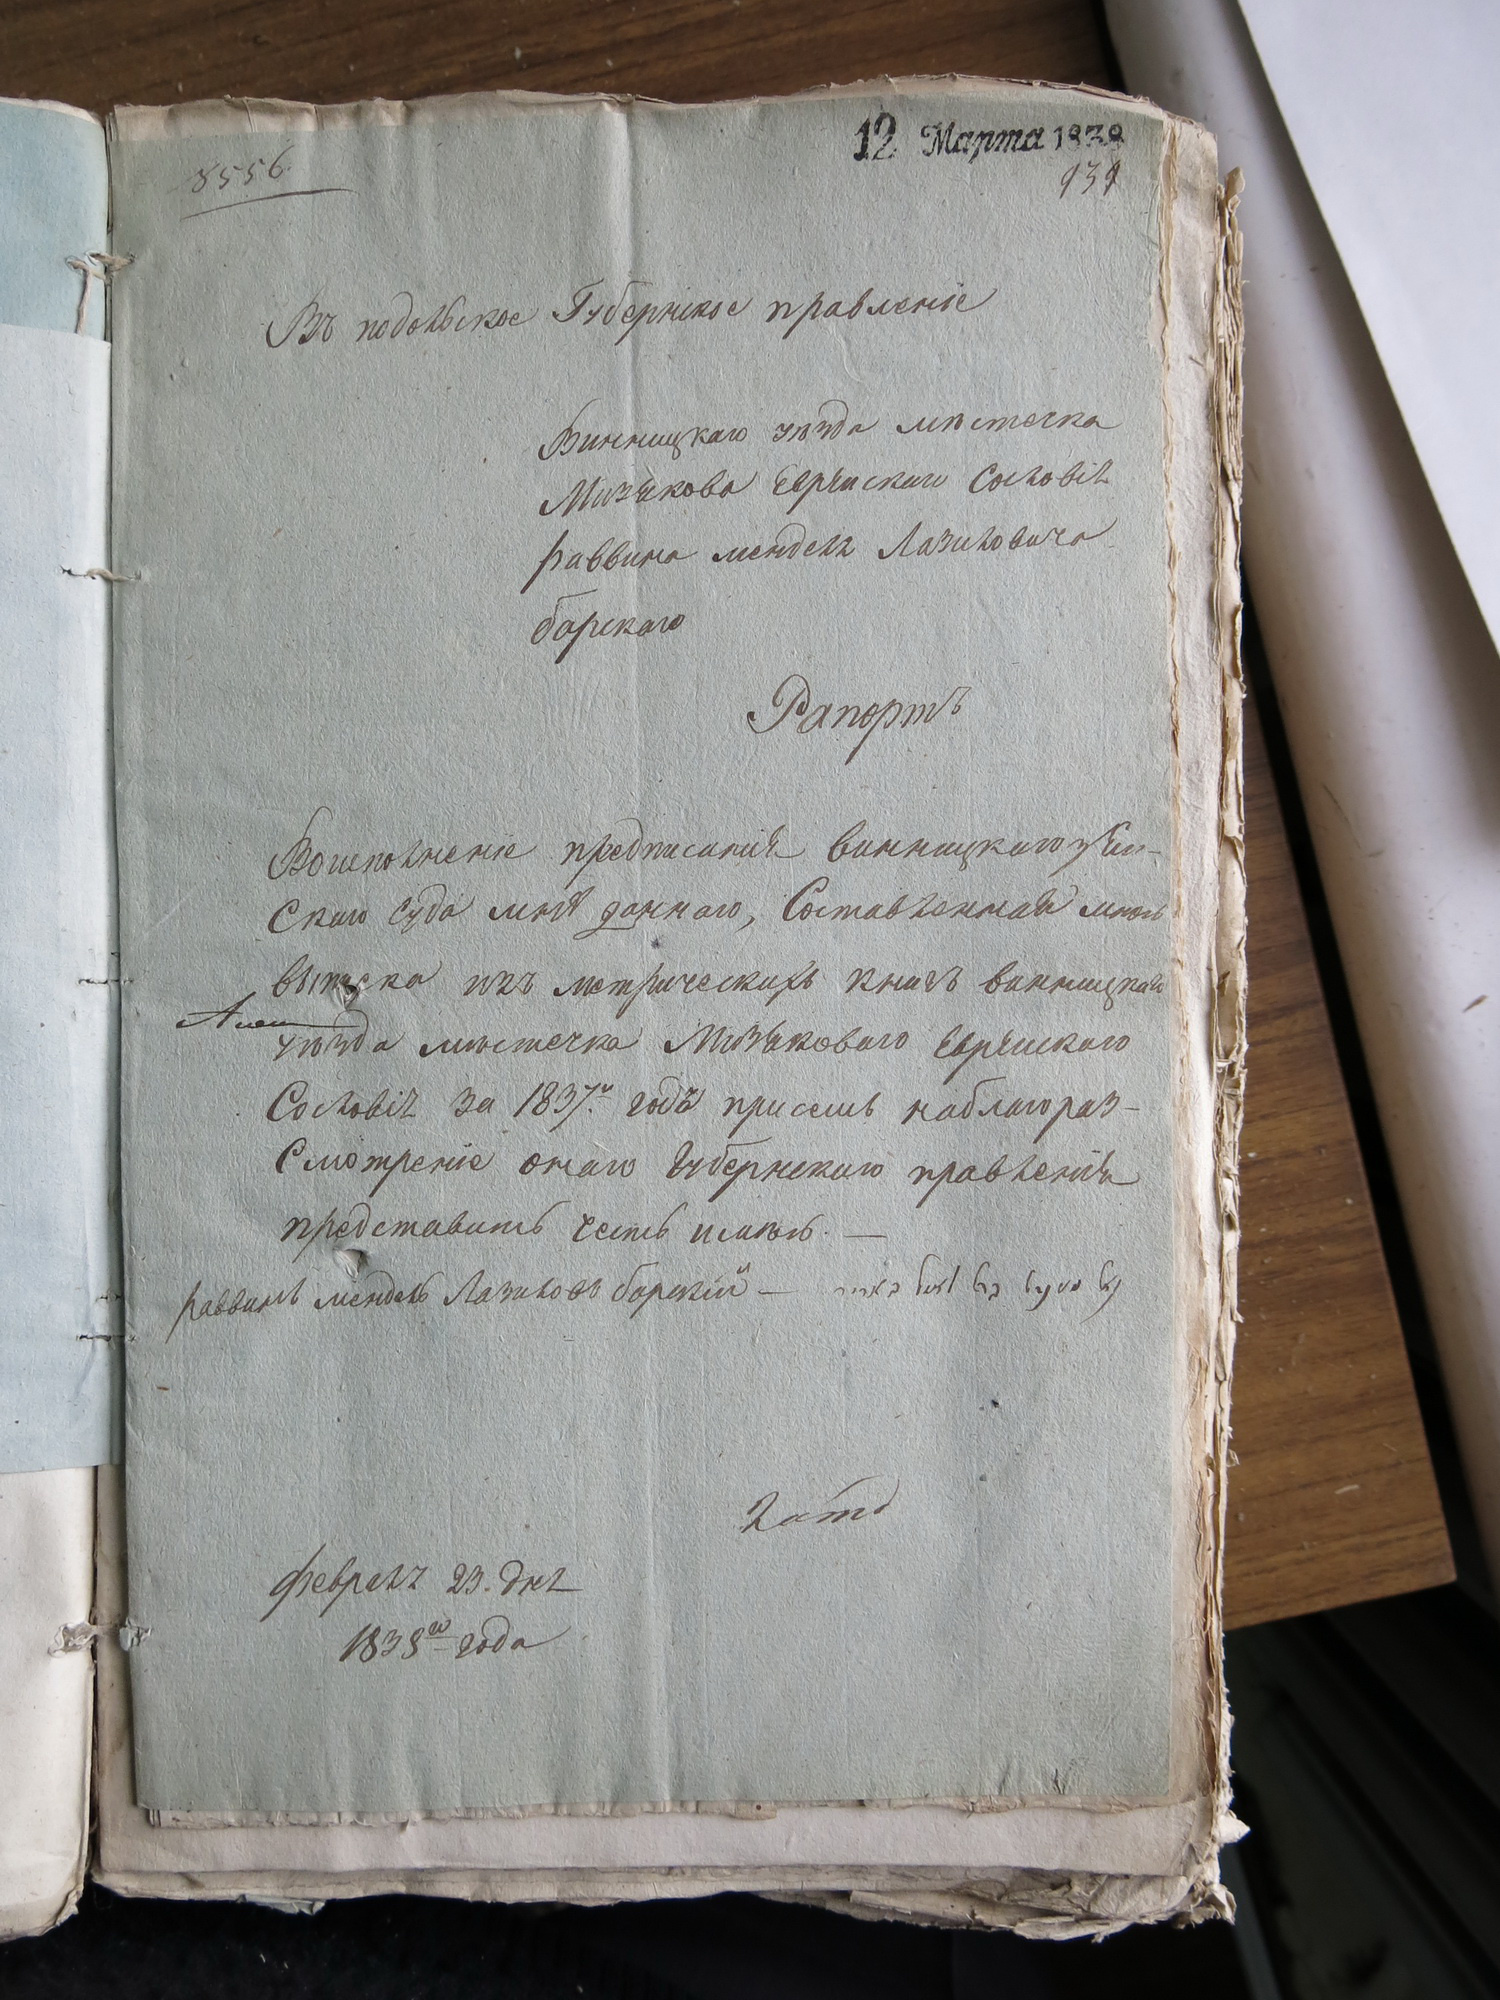 12 Марта 1838
8556.
939
Въ подольское Губернское правленіе
Винницкаго уѣзда мѣстечка
Мизякова Еврейскаго Сословія
раввина мендель Лазиковича
барскаго
Рапортъ
Воисполненіе предписанія винницкаго зем-
скаго суда мнѣ даннаго, Составленная мною
выписка изъ метрическихъ книгъ винницкаго
уѣзда мѣстечка Мизяковаго Еврейскаго
Сословія за 1837й годъ присемъ наблагораз-
Смотреніе онаго Губернскаго правленія
представить честь имѣю. —
раввинъ мендель Лазиковъ барскій —
февраля 23. дня
1838го года